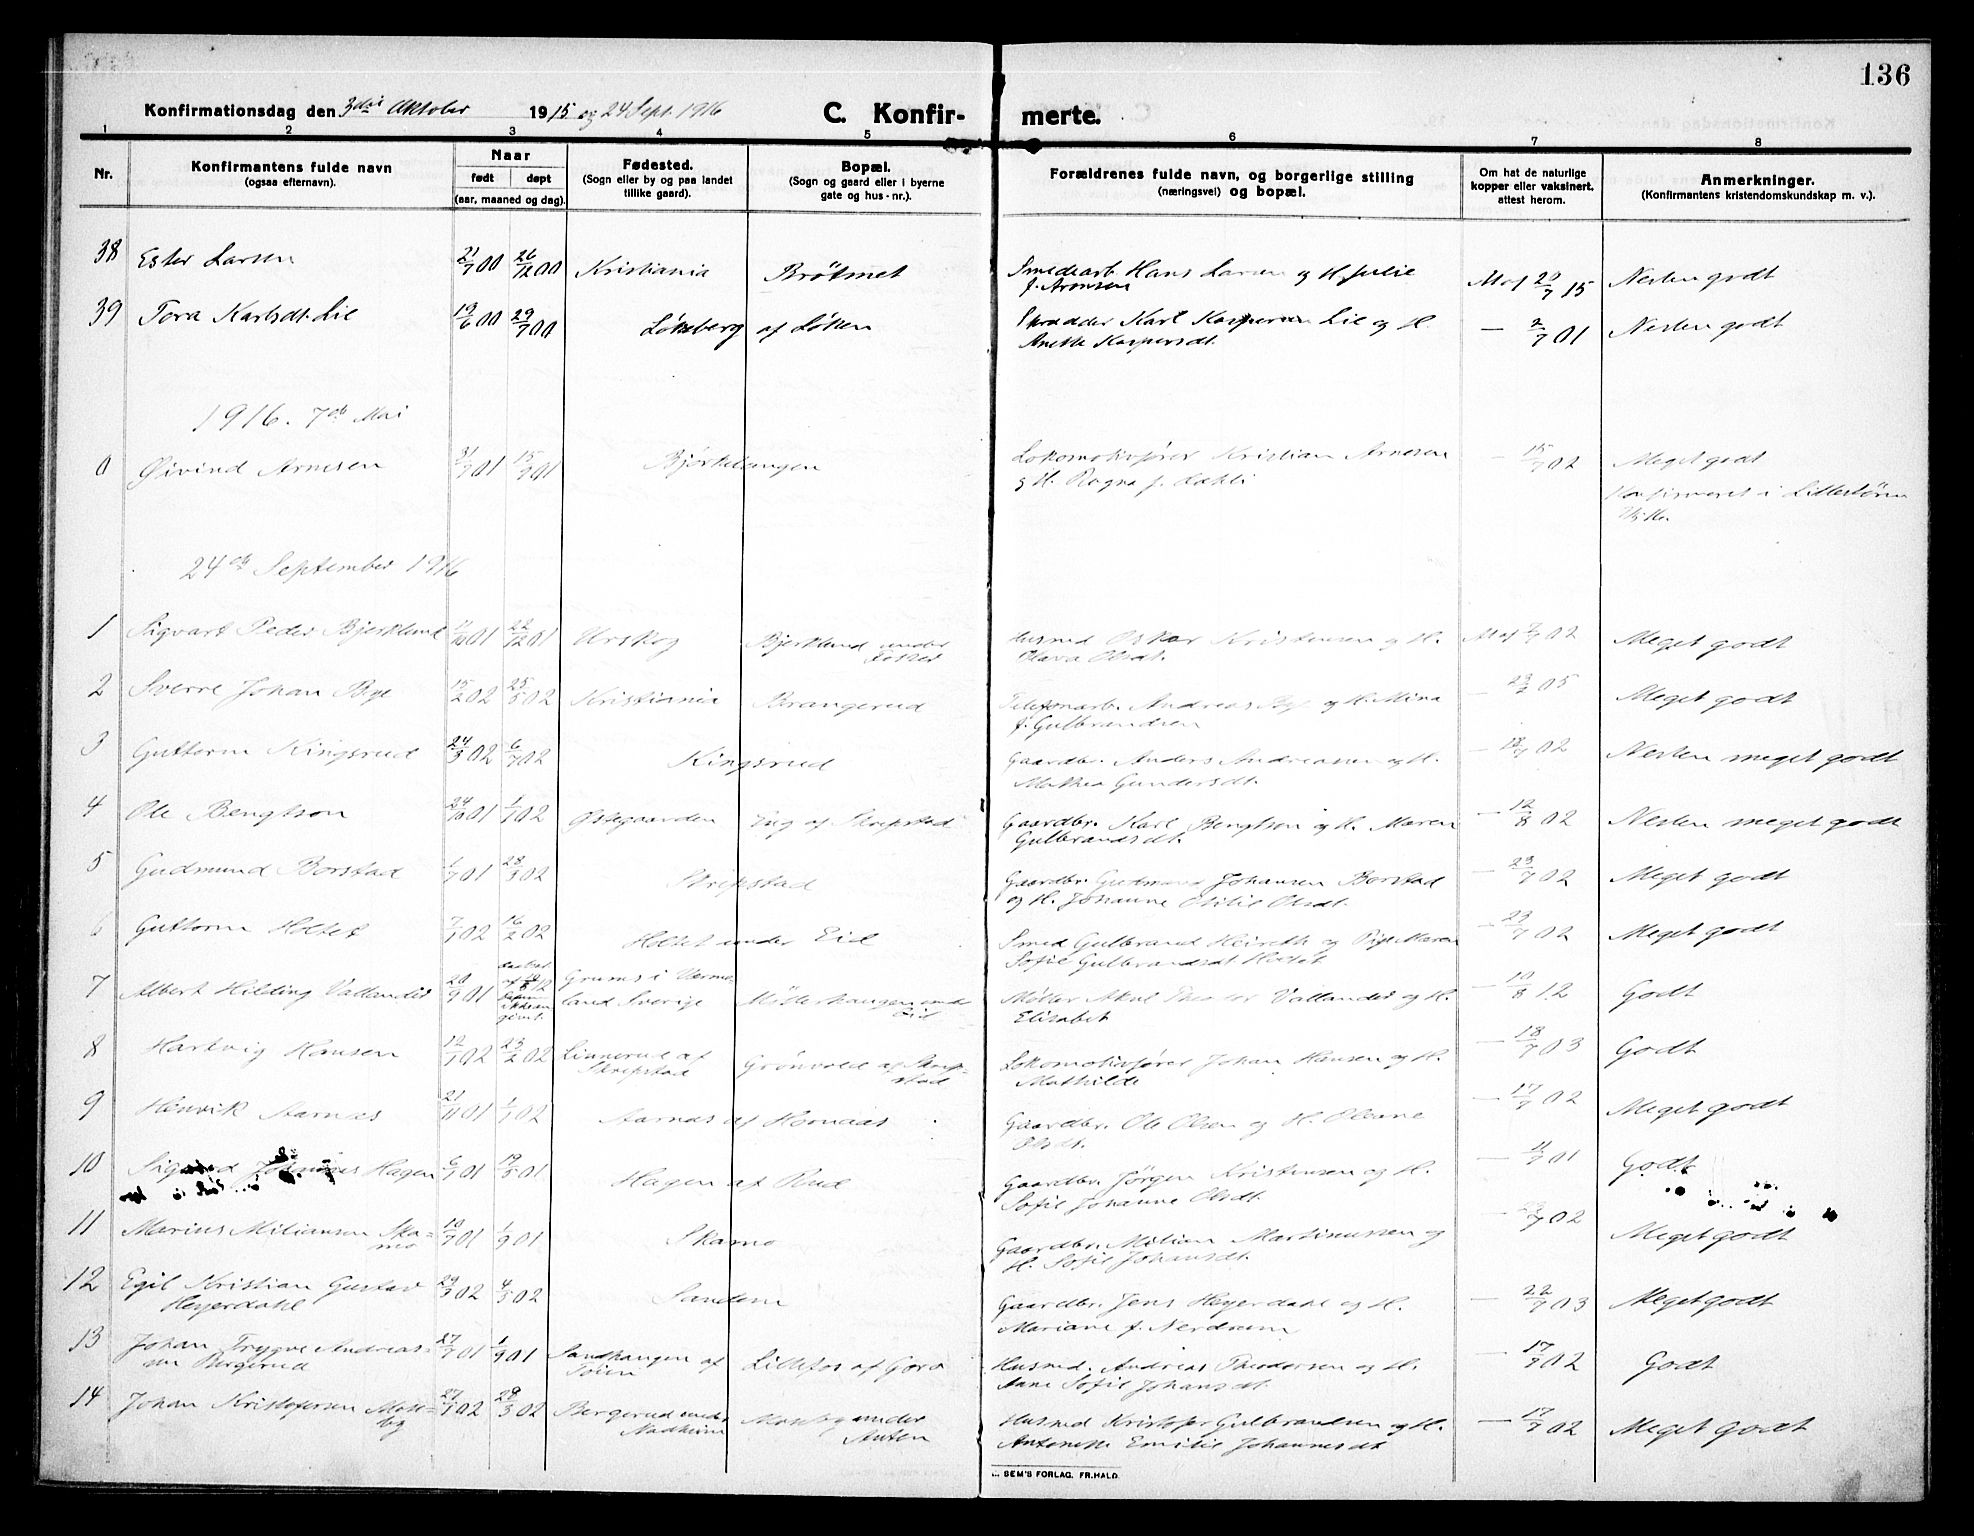 136
Konfirmationsdag den 3die Oktober 1915 og 24 Sept. 1916 C. Konfir- merte.
1 2 3 4 5 6 7 8
Nr.
Konfirmantens fulde navn
(ogsaa efternavn).
Naar
født døpt
(aar, maaned og dag).
Fødested.
(Sogn eller by og paa landet
tillike gaard).
Bopæl.
(Sogn og gaard eller i byerne
gate og hus-nr.).
Forældrenes fulde navn, og borgerlige stilling
(næringsvei) og bopæl.
Om hat de naturlige
kopper eller vaksinert,
attest herom.
Anmerkninger.
(Konfirmantens kristendomskundskap m. v.).
38 Ester Larsen 21/7 00 26/12 00 Kristiania Bråtmet Smedearb. Hans Larsen og H. Julie
f. Aronsen Moß 20/7 15 Nesten godt
39 Tora Karlsdt. Lie 19/6 00 29/7 00 Løkeberg af Løken Skrædder Karl Kaspersen Lie og H.
Anette Kaspersdt. — 2/7 01 Nesten godt
1916. 7de Mai
0 Øivind Arnesen 31/7 01 15/9 01 Bjørkelangen Lokomotivfører Kristian Arnesen
og H. Ragna f. Kahli — 15/7 02 Meget godt
Konfirmeret i Lillestrøm
24de September 1916
1 Sigvart Peder Bjerklund 11/10 01 22/12 01 Urskog Bjerklund under
Husmd Oskar Kristensen og H.
Olava Olsdt. 02 Meget godt
2 Sverre Johan Bye 15/2 02 25/5 02 Kristiania Brangerud Telefonarb. Andreas Bye og H. Mina
f. Gulbrandsen — 23/2 05 Meget godt
3 Guttorm Kingsrud 24/3 02 6/7 02 Kingsrud Gaardbr. Anders Andreassen og H.
Mathea Gundersdt. — 18/7 02 Nesten meget godt
4 Ole Bengtson 24/10 01 1/1 02 Østegaarden af Skripstad Gaardbr. Karl Bengtson og H. Maren
Gulbrandsdt. — 12/8 02 Nesten meget godt
5 Gudmund Borstad 1/7 01 28/3 02 Skripstad Gaardbr. Gudmund Johansen Borstad
og H. Johanne Otilie Olsdt. — 23/7 02 Meget godt
6 Guttorm Holtet 7/1 02 16/2 02 Holtet under Eid Smed Gulbrand Heireth og Pige Maren
Sofie Gulbrandsdt Holtet — 23/7 02 Meget godt
7 Albert Hilding Vallander 20/9 01 Grums i Værme
land Sverige Møllerhaugen unde
Eid Møller Aksel Theodor Vallander og H.
Elisabet — 10/8 12 Godt
8 Hartvig Hansen 12/1 02 23/2 02 Linnerud af
Skripstad Grønvold af Skrip-
stad Lokomotivfører Johan Hansen og H.
Mathilde — 18/7 03 Godt
9 Henrik Aarnæs 21/11 01 1/1 02 Aarnæs af Hornæs Gaardbr. Ole Olsen og H. Oleane
Olsdt. — 17/7 02 Meget godt
10 Sigurd Johannes Hagen 6/7 01 19/5 01 Hagen af Rud Gaardbr. Jørgen Kristensen og H.
Sofie Johanne Olsdt. 01 Godt
11 Marius Miliansen Ska-
mo 10/7 01 1/9 01 Skamo Gaardbr. Milian Martinussen og
H. Sofie Johansdt. 02 Meget godt
12 Egil Kristian Gustav
Heyerdahl 29/3 02 4/5 02 Sandem Gaardbr. Jens Heyerdahl og H.
Mariane f. Nerdrum — 22/7 03 Meget godt
13 Johan Trygve Andreas-
sen Bergerud 27/7 01 1/9 01 Sandhaugen af
Toien Lillefos af Gora Husmd. Andreas Theodorsen og H.
Anne Sofie Johansdt. — 17/7 02 Godt
14 Johan Kristofersen Mose-
by 27/1 02 28/3 02 Bergerud under
Nadheim Moseby under
Anten Husmd Kristofer Gulbrandsen og H.
Antonette Emilie Johannesdt — 17/7 02 Meget godt
SEM'S FORLAG. FR. HALD.